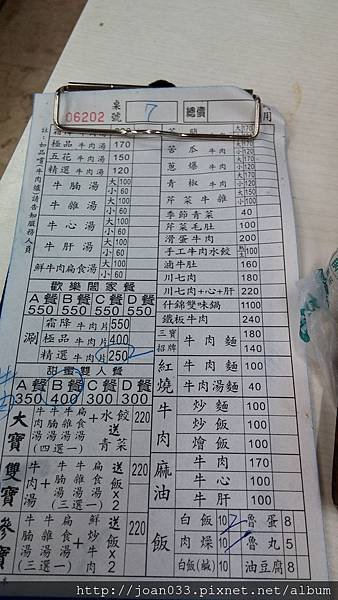 06202 桌號 7 總價 用
註：如品嚐牛肉爐請告知服務人員
極品 牛肉湯 170
五花 牛肉湯 150
精選 牛肉湯 120
牛腩湯 大100 小60
牛雜湯 大100 小60
牛心湯 大100 小60
牛肝湯 大100 小60
鮮牛肉扁食湯 大100 小60
歡樂闔家餐
A餐 B餐 C餐 D餐
550 550 550 550
涮
霜降 牛肉片 550
極品 牛肉片 400
精選 牛肉片 250
甜蜜雙人餐
A餐 B餐 C餐 D餐
350 400 300 300
大寶
牛肉湯 牛腩湯 牛雜湯 扁食湯 (四選一) + 水餃 送青菜 220
雙寶
牛肉湯 + 牛腩湯 牛雜湯 扁食湯 (三選一) 送飯x2 220
參寶
牛腩湯 牛雜湯 扁食湯 (三選一) + 鮮炒牛肉 送飯x2 220
苦瓜 牛肉
蔥爆 牛肉
青椒 牛肉
芹菜牛雜
季節青菜 40
芹菜毛肚 100
滑蛋牛肉 100
手工牛肉水餃
滷牛肚 160
川七肉 180
川七肉+心+肝 220
什錦雙味鍋 1100
鐵板牛肉 240
紅燒
三寶 牛肉麵 180
招牌 牛肉麵 140
牛肉麵 100
牛肉湯麵 40
牛肉
炒麵 100
炒飯 100
燴飯 100
麻油
牛肉 170
牛心 100
牛肝 100
飯
白飯 10 魯蛋 8
肉燥 10 魯丸 5
白飯(鹹) 10 油豆腐 8
http://joan033.pixnet.net/album